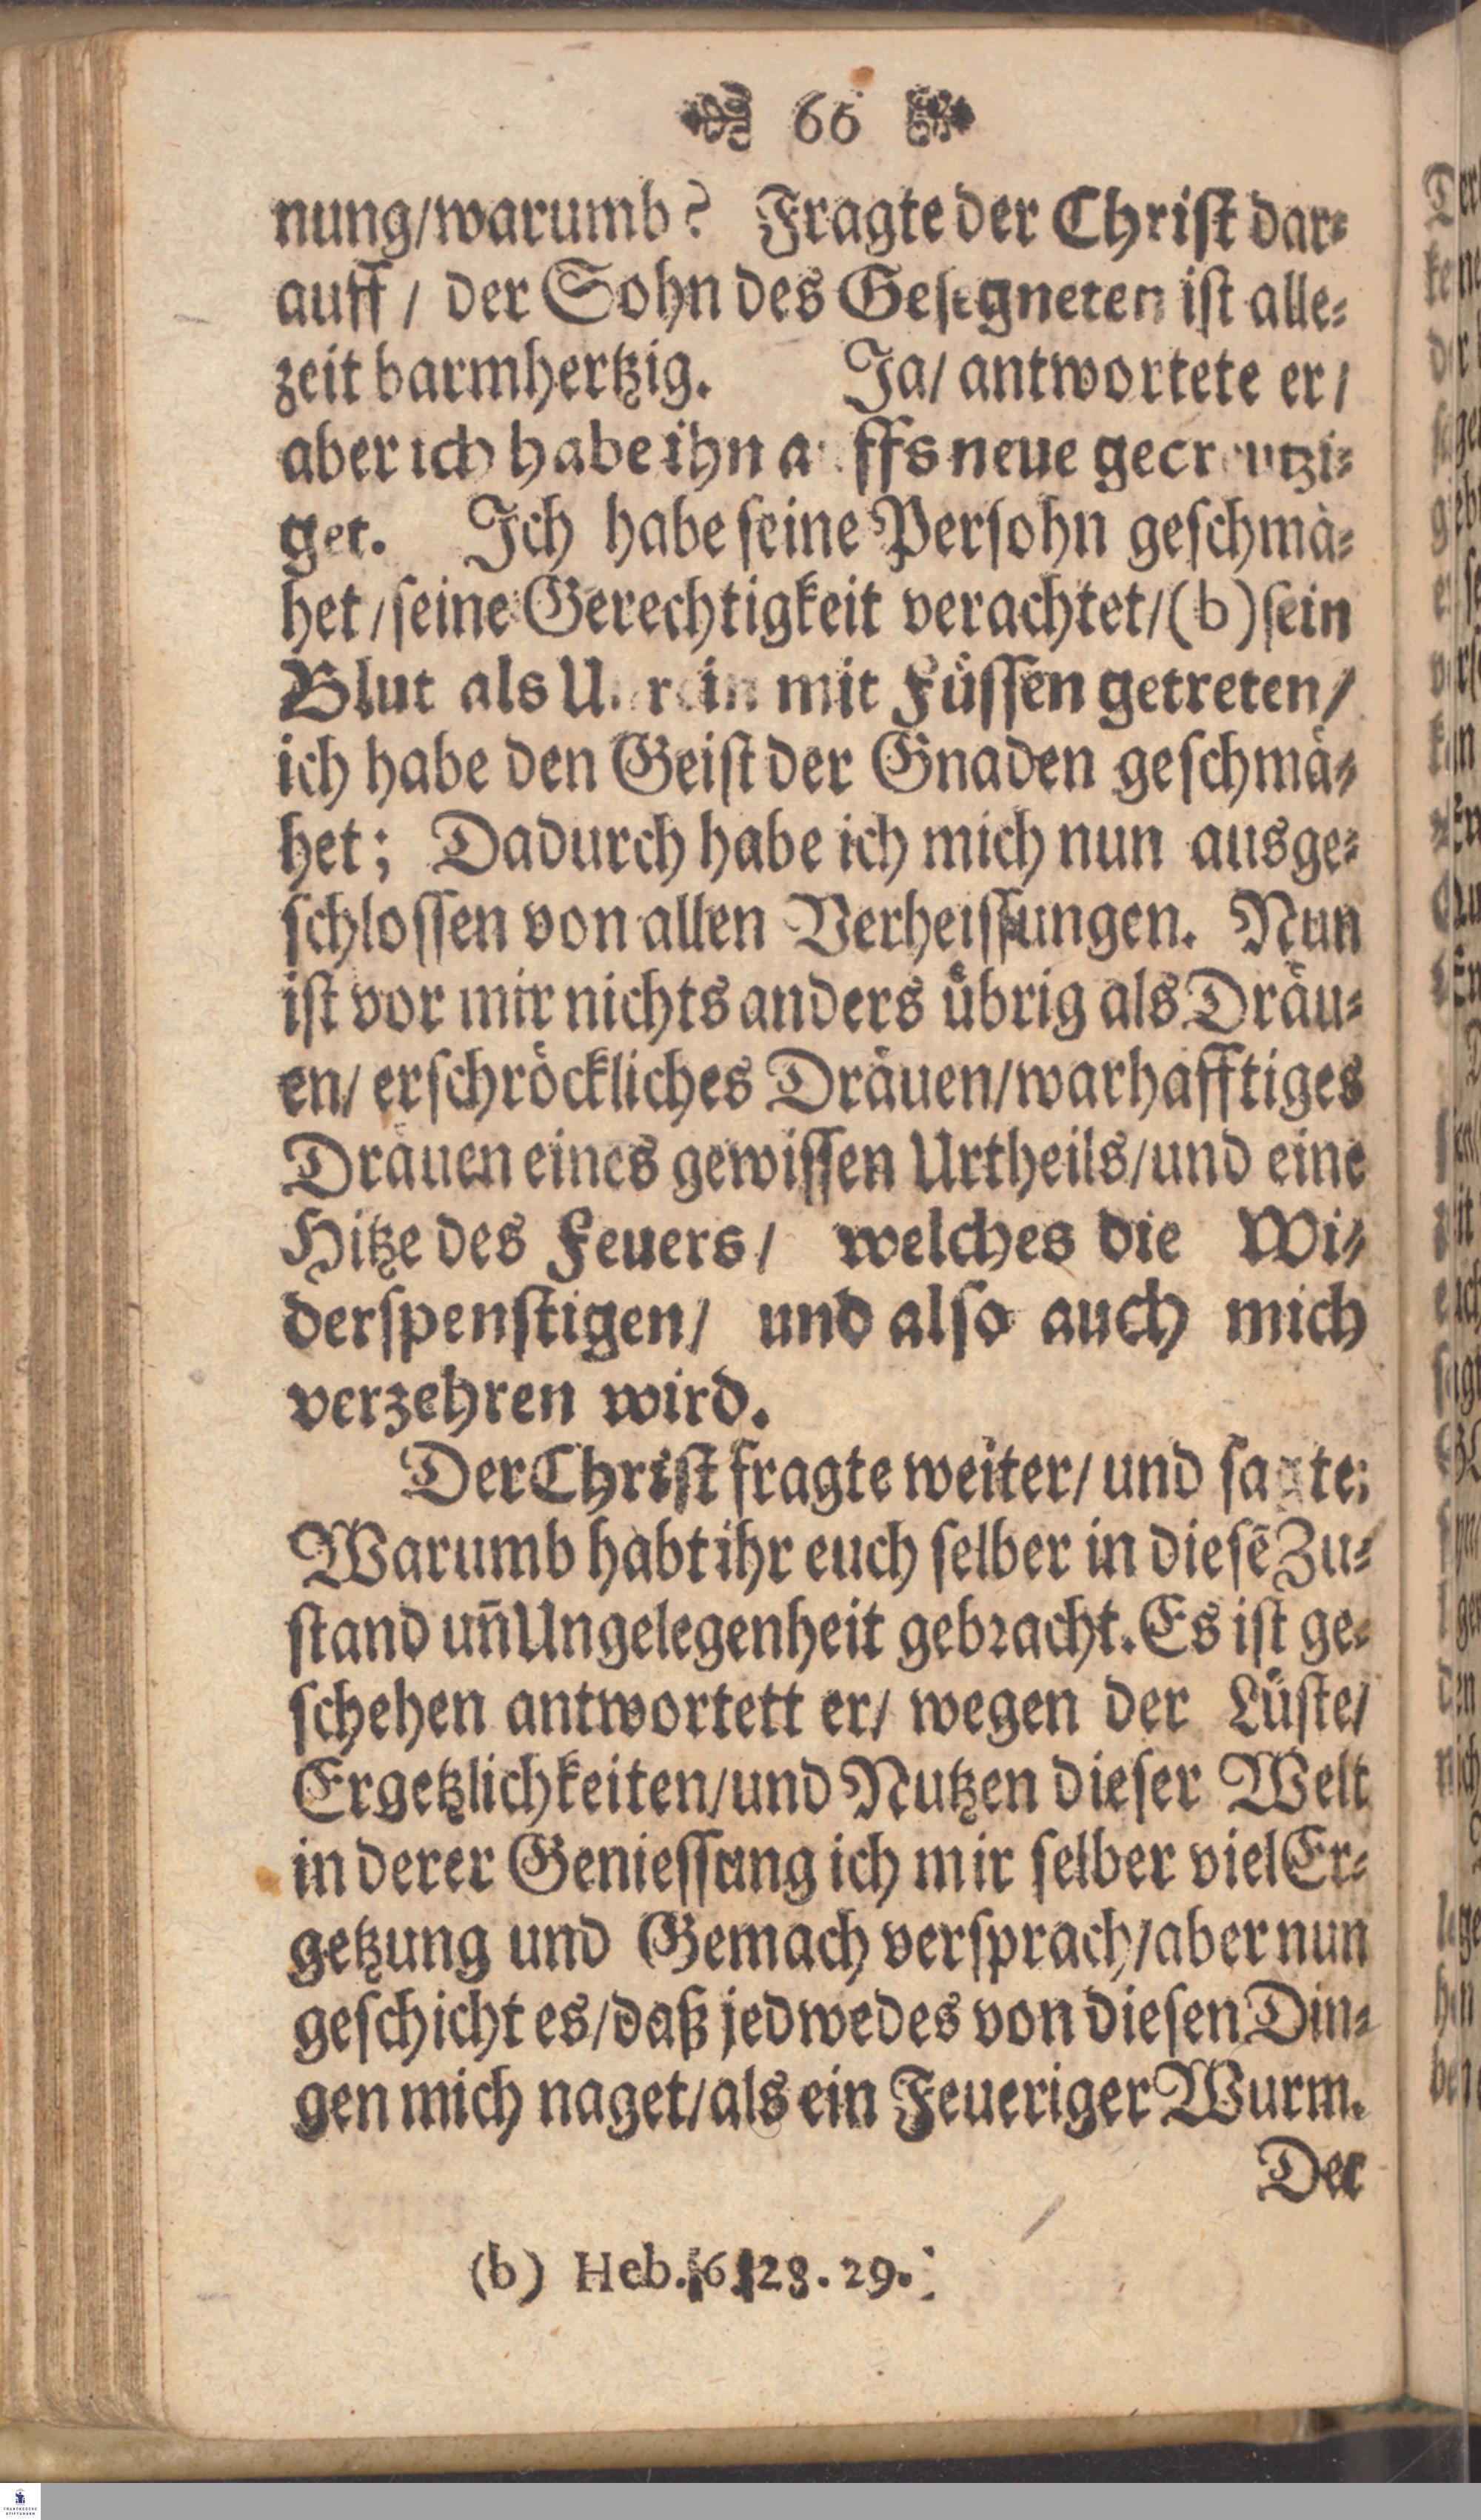 66
nung/warumb? Fragte der Christ dar⸗
auff / der Sohn des Gesegneten ist alle⸗
zeit barmhertzig. Ja/ antwortete er/
aber ich habe ihn auffs neue gecreutzi⸗
get. Ich habe seine Persohn geschmä⸗
het/seine Gerechtigkeit verachtet/(b)sein
Blut als Unrein mit Füssen getreten/
ich habe den Geist der Gnaden geschmä⸗
het; Dadurch habe ich mich nun ausge⸗
schlossen von allen Verheissungen. Nun
ist vor mir nichts anders übrig als Dräu⸗
en/ erschröckliches Dräuen/warhafftiges
Dräuen eines gewissen Urtheils/und eine
Hitze des Feuers/ welches die Wi⸗
derspenstigen/ und also auch mich
verzehren wird.
Der Christ fragte weiter/ und sagte;
Warumb habt ihr euch selber in diesē Zu⸗
stand un̄ Ungelegenheit gebracht. Es ist ge⸗
schehen antwortett er/ wegen der Lüste/
Ergetzlichkeiten/und Nutzen dieser Welt
in derer Geniessung ich mir selber viel Er⸗
getzung und Gemach versprach/aber nun
geschicht es/daß jedwedes von diesen Din⸗
gen mich naget/als ein Feueriger Wurm.
Der
(b) Heb. 6 28. 29.